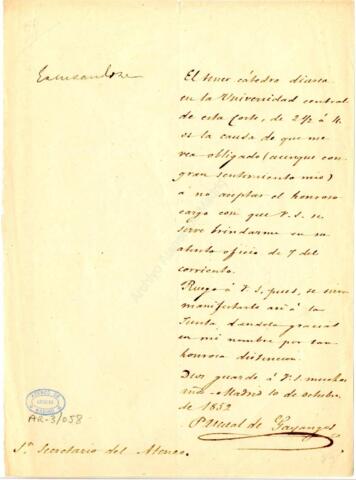 Escusandose
El tener cátedra diurea
en la Universidad central
de esta Corte, de 2½ á 4.
es la causa de que me
vea obligado (aunque con
gran sentimiento mio)
á no aceptar el honroso
cargo con que V.S. se
sirve brindarme en su
atento oficio de 7 del
corriente.
Ruego á V.S. pues, se sirva
manifestarlo asi á la
Junta dandola gracias
en mi nombre por tan
honrosa distincion.
Dios guarde á V.S. muchos
años. Madrid 10 de octubre
de 1852
Pascual de Gayangos
AR-3/058
Sr. Secretario del Ateneo.